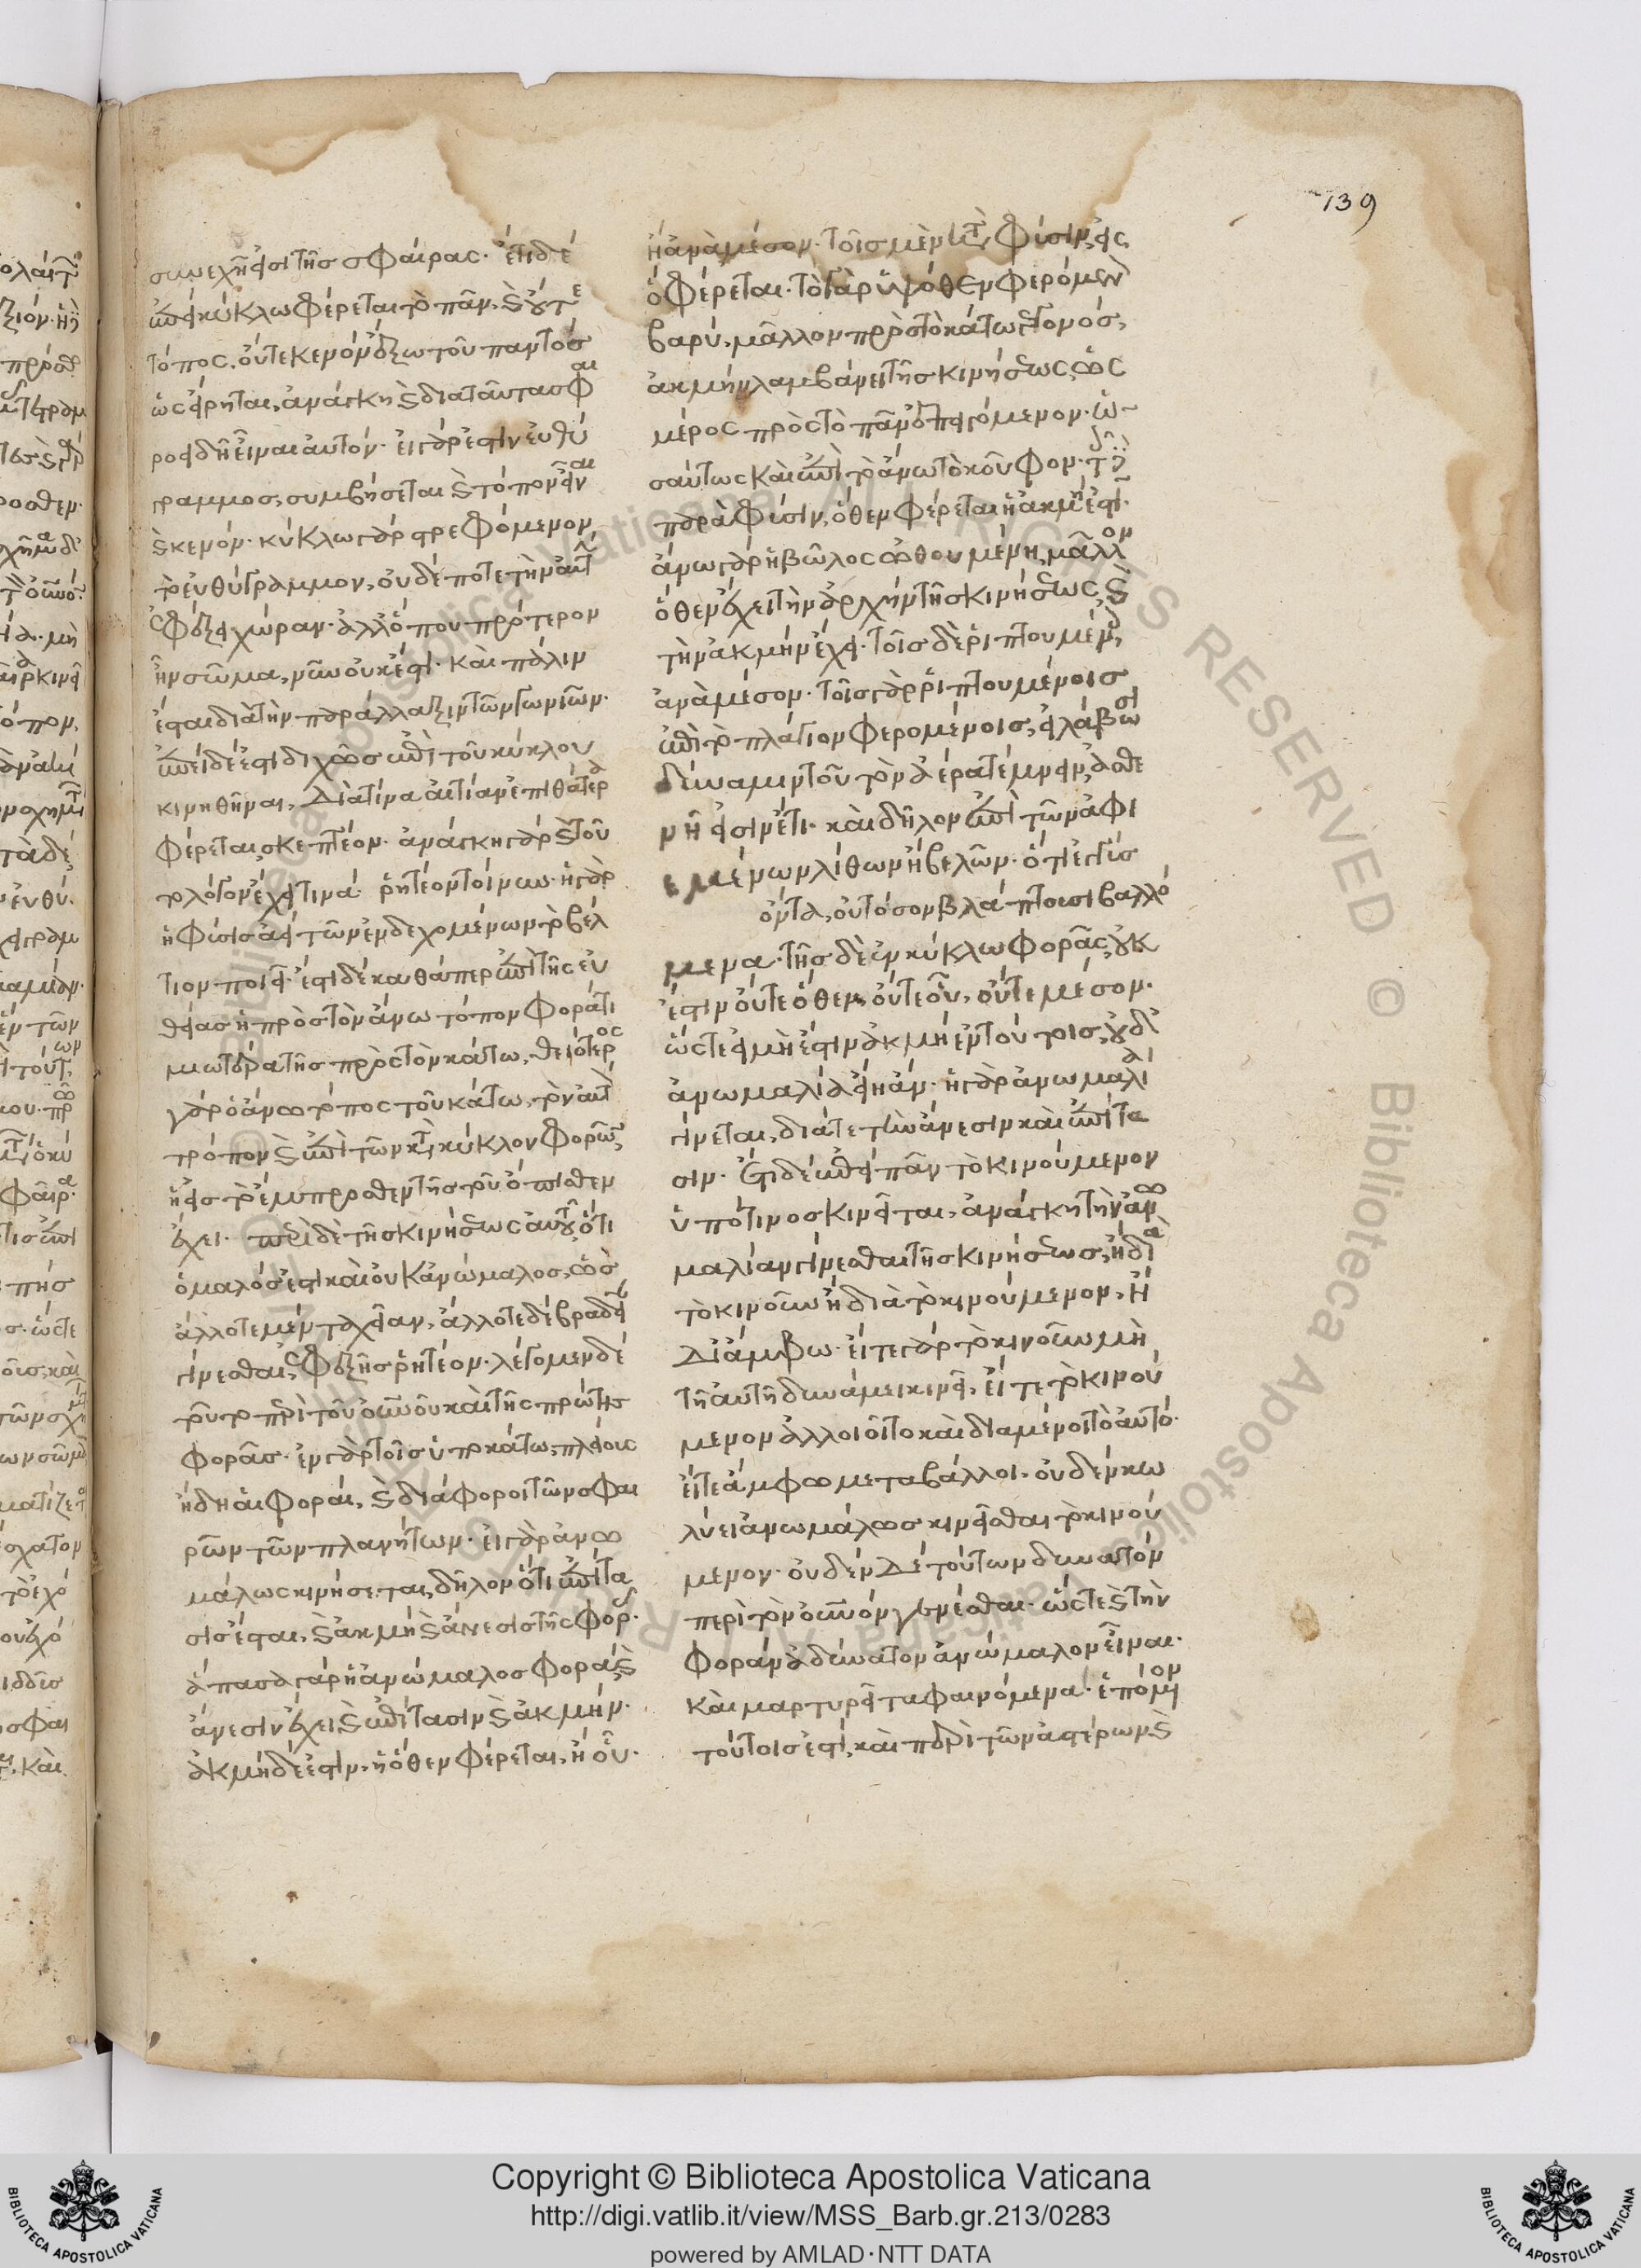 συνεχῆ εἰσι τῆς σφαίρας· ἔτι δὲ
ἐπεὶ κύκλω φέρεται τὸ πᾶν, καὶ οὔτε
τόπος, οὔτε κενὸν ἔξω τοῦ παντός
ὡς εἴρηται, ἀνάγκη καὶ διὰ ταῦτα σφαι
ροειδῆ εἶναι αὐτόν· εἰ γὰρ ἐστὶν εὐθύ
γραμμος, συμβήσεται καὶ τόπον εἶναι
καὶ κενόν· κύκλω γὰρ στρεφόμενον
τὸ εὐθύγραμμον, οὐδέποτε τὴν αὐτὴν
ἐφέξει χώραν· ἀλλ' ὅπου πρότερον
ἦν σῶμα, νῦν οὐκ ἔστι· καὶ πάλιν
ἔσται διὰ τὴν παράλλαξιν τῶν γωνιῶν·
ἐπεὶ δέ ἐστι διχῶς ἐπὶ τοῦ κύκλου
κινηθῆναι, διὰ τίνα αἰτίαν ἐπὶ θάτερα
φέρεται, σκεπτέον· ἀνάγκη γὰρ καὶ τοῦ
το λόγον ἔχειν τινά· ῥητέον τοίνυν· εἰ γὰρ
ἡ φύσις ἀεὶ τῶν ἐνδεχομένων τὸ βέλ
τιον ποιεῖ· ἔστι δὲ καθάπερ ἐπὶ τῆς εὐ
θείας ἡ πρὸς τὸν ἄνω τόπον φορὰ τι
μιωτέρα τῆς πρὸς τὸν κάτω, θειότερος
γὰρ ὁ ἄνω τόπος τοῦ κάτω, τὸν αὐτὸν
τρόπον καὶ ἐπὶ τῶν κατὰ κύκλον φορῶν
ἡ εἰς τὸ ἔμπροσθεν τῆς τοῦ ὄπισθεν
ἔχει. περὶ δὲ τῆς κινήσεως αὐτοῦ ὅτι
ὁμαλός ἐστι καὶ οὐκ ἀνώμαλος, ὡς
ἄλλοτε μὲν ταχεῖαν, ἄλλοτε δὲ βραδεῖαν
γίνεσθαι, ἐφεξῆς ῥητέον· λέγομεν δὲ
τοῦτο περὶ τοῦ οὐρανοῦ καὶ τῆς πρώτης
φορᾶς· ἐν γὰρ τοῖς ὑποκάτω, πλείους
ἤδη αἱ φοραί, καὶ διάφοροι τῶν σφαι
ρῶν τῶν πλανήτων· εἰ γὰρ ἀνω
μάλως κινήσεται, δῆλον ὅτι ἐπίτα
σις ἔσται, καὶ ἀκμὴ καὶ ἄνεσις τῆς φορᾶς·
ἅπασα γὰρ ἡ ἀνώμαλος φορὰ καὶ
ἄνεσιν ἔχει καὶ ἐπίτασιν καὶ ἀκμήν·
ἀκμὴ δέ ἐστιν, ἢ ὅθεν φέρεται, ἢ οὗ·
139
ἢ ἀνὰ μέσον· τοῖς μὲν κατὰ φύσιν, εἰς
ὃ φέρεται· τὸ γὰρ ὑψόθεν φερόμενον
βαρύ, μᾶλλον πρὸς τὸ κάτω γεγονός,
ἀκμὴν λαμβάνει τῆς κινήσεως, ὡς
μέρος πρὸς τὸ πᾶν ἐπειγόμενον· ὡ
σαύτως καὶ ἐπὶ τὸ ἄνω τὸ κοῦφον· τοῖς δὲ
παρὰ φύσιν, ὅθεν φέρεται ἡ ἀκμή ἐστι·
ἄνω γὰρ ἡ βῶλος ὠθουμένη, μᾶλλον
ὅθεν ἔχει τὴν ἀρχὴν τῆς κινήσεως, καὶ
τὴν ἀκμὴν ἔχει· τοῖς δὲ ῥιπτουμένοις
ἀνὰ μέσον· τοῖς γὰρ ῥιπτουμένοις
ἐπὶ τὸ πλάγιον φερομένοις, εἰ λάβωσι
δύναμιν τοῦ τὸν ἀέρα τέμνειν, ἀσθε
νῆ εἰσιν ἔτι· καὶ δῆλον ἐπὶ τῶν ἀφι
εμένων λίθων ἢ βελῶν· ὅτι ἐγγὺς
ὄντα, οὐ τόσον βλάπτουσι βαλλό
μενα· τῆς δὲ ἐν κύκλω φορᾶς, οὐκ
ἔστιν οὔτε ὅθεν, οὔτε οὗ, οὔτε μέσον·
ὥστε εἰ μὴ ἔστιν ἀκμὴ ἐν τούτοις, οὐδ'
ἀνωμαλία εἴη ἄν· ἡ γὰρ ἀνωμαλία
γίνεται, διά τε τὴν ἄνεσιν καὶ ἐπίτα
σιν· ἔτι δὲ ἐπεὶ πᾶν τὸ κινούμενον
ὑπό τινος κινεῖται, ἀνάγκη τὴν ἀνω
μαλίαν γίνεσθαι τῆς κινήσεως, ἢ διὰ
τὸ κινοῦν ἢ διὰ τὸ κινούμενον, ἢ
δι' ἄμφω· εἴτε γὰρ τὸ κινοῦν μὴ
τῇ αὐτῇ δυνάμει κινεῖ, εἴτε τὸ κινού
μενον ἀλλοιοῖτο καὶ διαμένοι τὸ αὐτό·
εἴτε ἄμφω μεταβάλλοι· οὐδὲν κω
λύει ἀνωμάλως κινεῖσθαι τὸ κινού
μενον· οὐδὲν δὲ τούτων δυνατὸν
περὶ τὸν οὐρανὸν γενέσθαι· ὥστε καὶ τὴν
φορὰν ἀδύνατον ἀνώμαλον εἶναι·
καὶ μαρτυρεῖ τὰ φαινόμενα· ἑπόμενον
τούτοις ἐστί, καὶ περὶ τῶν ἀστέρων καὶ
Copyright © Biblioteca Apostolica Vaticana
http://digi.vatlib.it/view/MSS_Barb.gr.213/0283
powered by AMLAD·NTT DATA
BIBLIOTECA APOSTOLICA VATICANA
BIBLIOTECA APOSTOLICA VATICANA